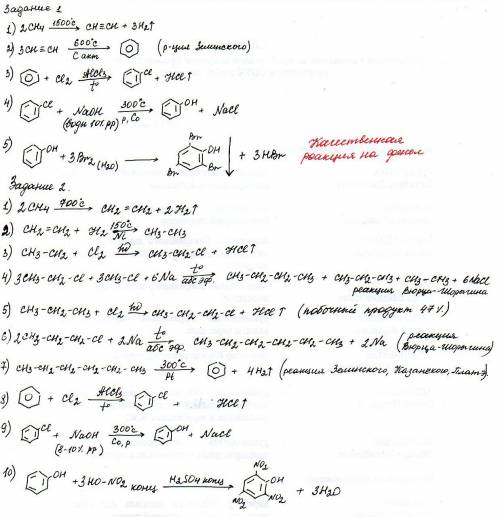 Задание 1
1) 2CH4 1500°C→ CH≡CH + 3H2↑
2) 3CH≡CH 600°C→ С акт (р-ция Зелинского)
3) + Cl2 AlCl3→ t° Cl + HCl↑
4) Cl + NaOH 300°C→ p, Co OH + NaCl
(водн 10% рр)
5) OH + 3Br2 (H2O) → Br OH Br Br ↓ + 3HBr Качественная реакция на фенол
Задание 2.
1) 2CH4 700°C→ CH2=CH2 + 2H2↑
2) CH2=CH2 + H2 150°C→ Ni CH3-CH3
3) CH3-CH2 + Cl2 hν→ CH3-CH2-Cl + HCl↑
4) 3CH3-CH2-Cl + 3CH3-Cl + 6Na t°→ абс эф. CH3-CH2-CH2-CH3 + CH3-CH2-CH3 + CH3-CH3 + 6NaCl
реакция Вюрца-Шорыгина
5) CH3-CH2-CH3 + Cl2 hν→ CH3-CH2-CH2-Cl + HCl↑ (побочный продукт 47%)
6) 2CH3-CH2-CH2-Cl + 2Na t°→ абс эф. CH3-CH2-CH2-CH2-CH2-CH3 + 2Na (реакция Вюрца-Шорыгина)
7) CH3-CH2-CH2-CH2-CH2-CH3 300°C→ Pt + 4H2↑ (реакция Зелинского, Казанского, Платэ).
8) + Cl2 AlCl3→ t° Cl + HCl↑
9) Cl + NaOH 300°C→ Co, p OH + NaCl
(8-10% рр)
10) OH + 3HO-NO2 конц H2SO4 конц→ NO2 OH NO2 NO2 + 3H2O